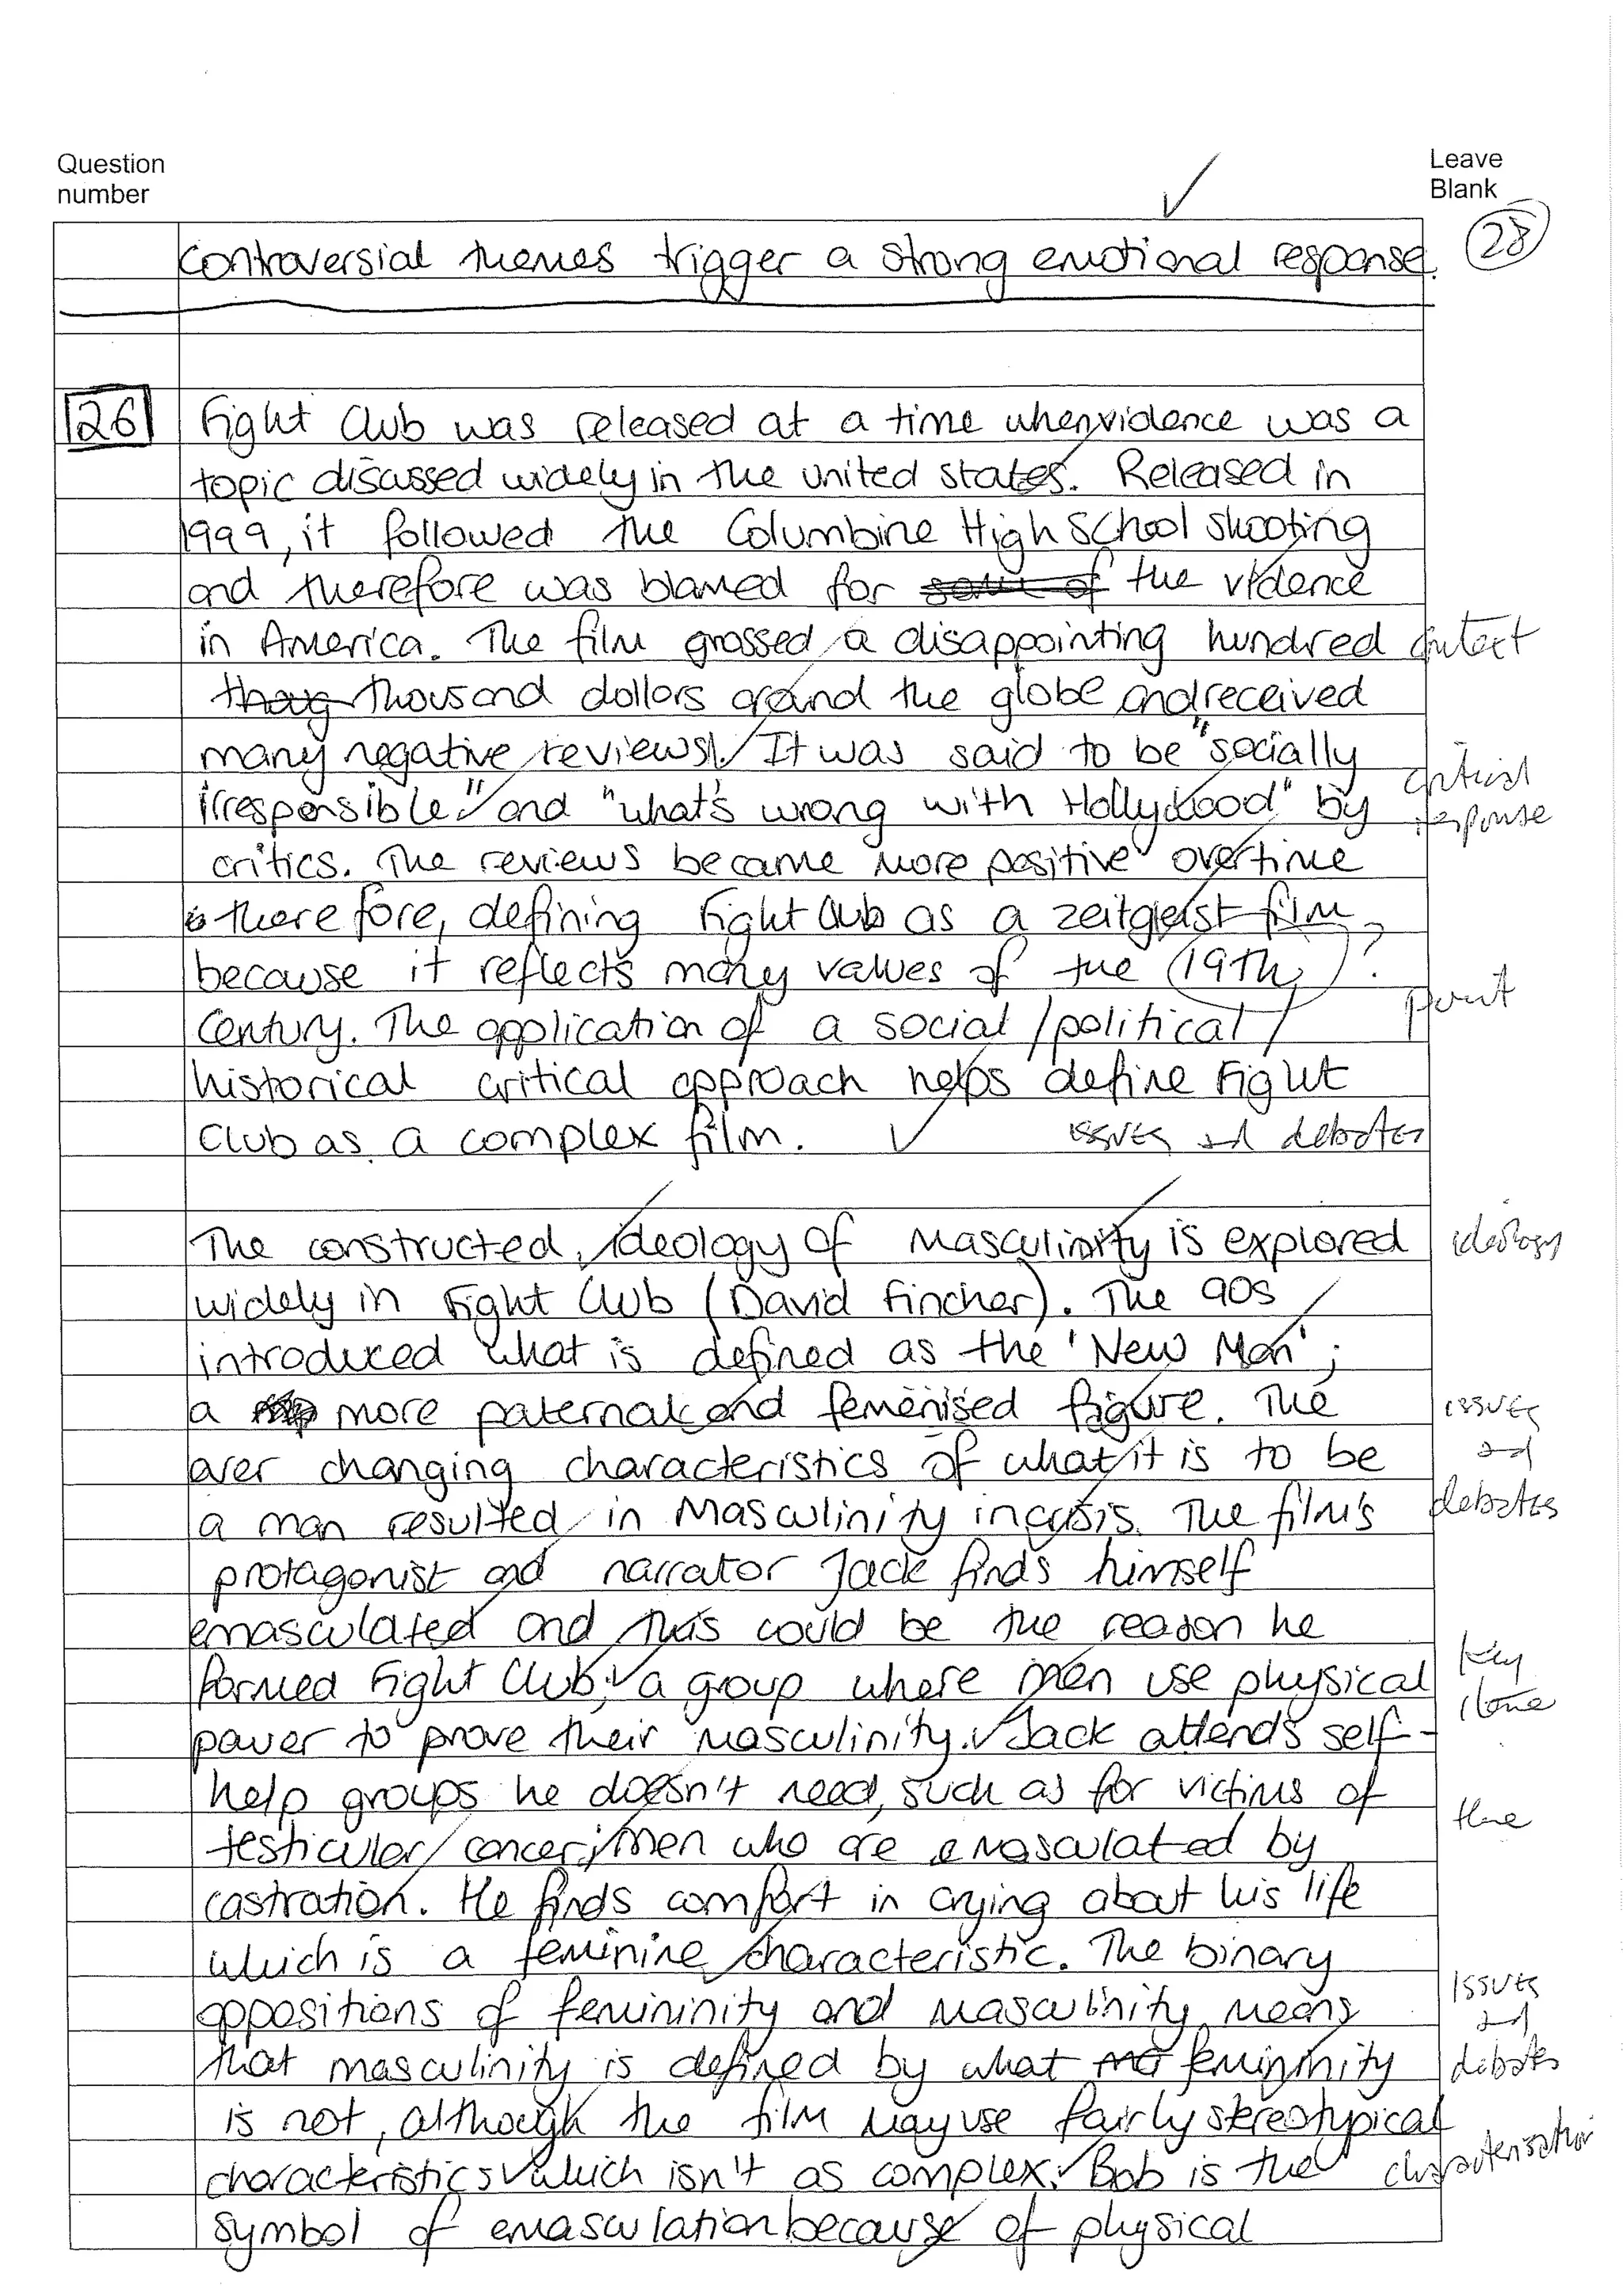 Question number
Leave Blank
28
controversial themes trigger a strong emotional response.
26
Fight Club was released at a time when violence was a
topic discussed widely in the united states. Released in
1999, it followed the Columbine High School shooting
and therefore was blamed for some of the violence
in America. The film grossed a disappointing hundred
context
thoug thousand dollars around the globe and received
many negative reviews. It was said to be "socially
irresponsible" and "what's wrong with Hollywood" by
critical response
critics. The reviews became more positive overtime
therefore, defining Fight Club as a zeitgeist film
because it reflects many values of the 19th ?
point
Century. The application of a social/political/
historical critical approach helps define Fight
Club as a complex film.
issues and debates
The constructed ideology of Masculinity is explored
ideology
widely in Fight Club (David Fincher). The 90s
introduced what is defined as the 'New Man';
a more paternal and femenised figure. The
issues and debates
aver changing characteristics of what it is to be
a man resulted in Masculinity in crisis. The film's
protagonist and narrator Jack finds himself
emasculated and this could be the reason he
formed Fight Club; a group where men use physical
key
power to prove their masculinity. Jack attends self-
help groups he doesn't need, such as for victims of
testicular cancer; men who are emasculated by
castration. He finds comfort in crying about his life
which is a feminine characteristic. The binary
oppositions of femininity and masculinity means
issues and debates
that masculinity is defined by what femininity
is not, although the film may use fairly stereotypical
characteristics which isn't as complex. Bob is the
characterisation
symbol of emasculation because of physical